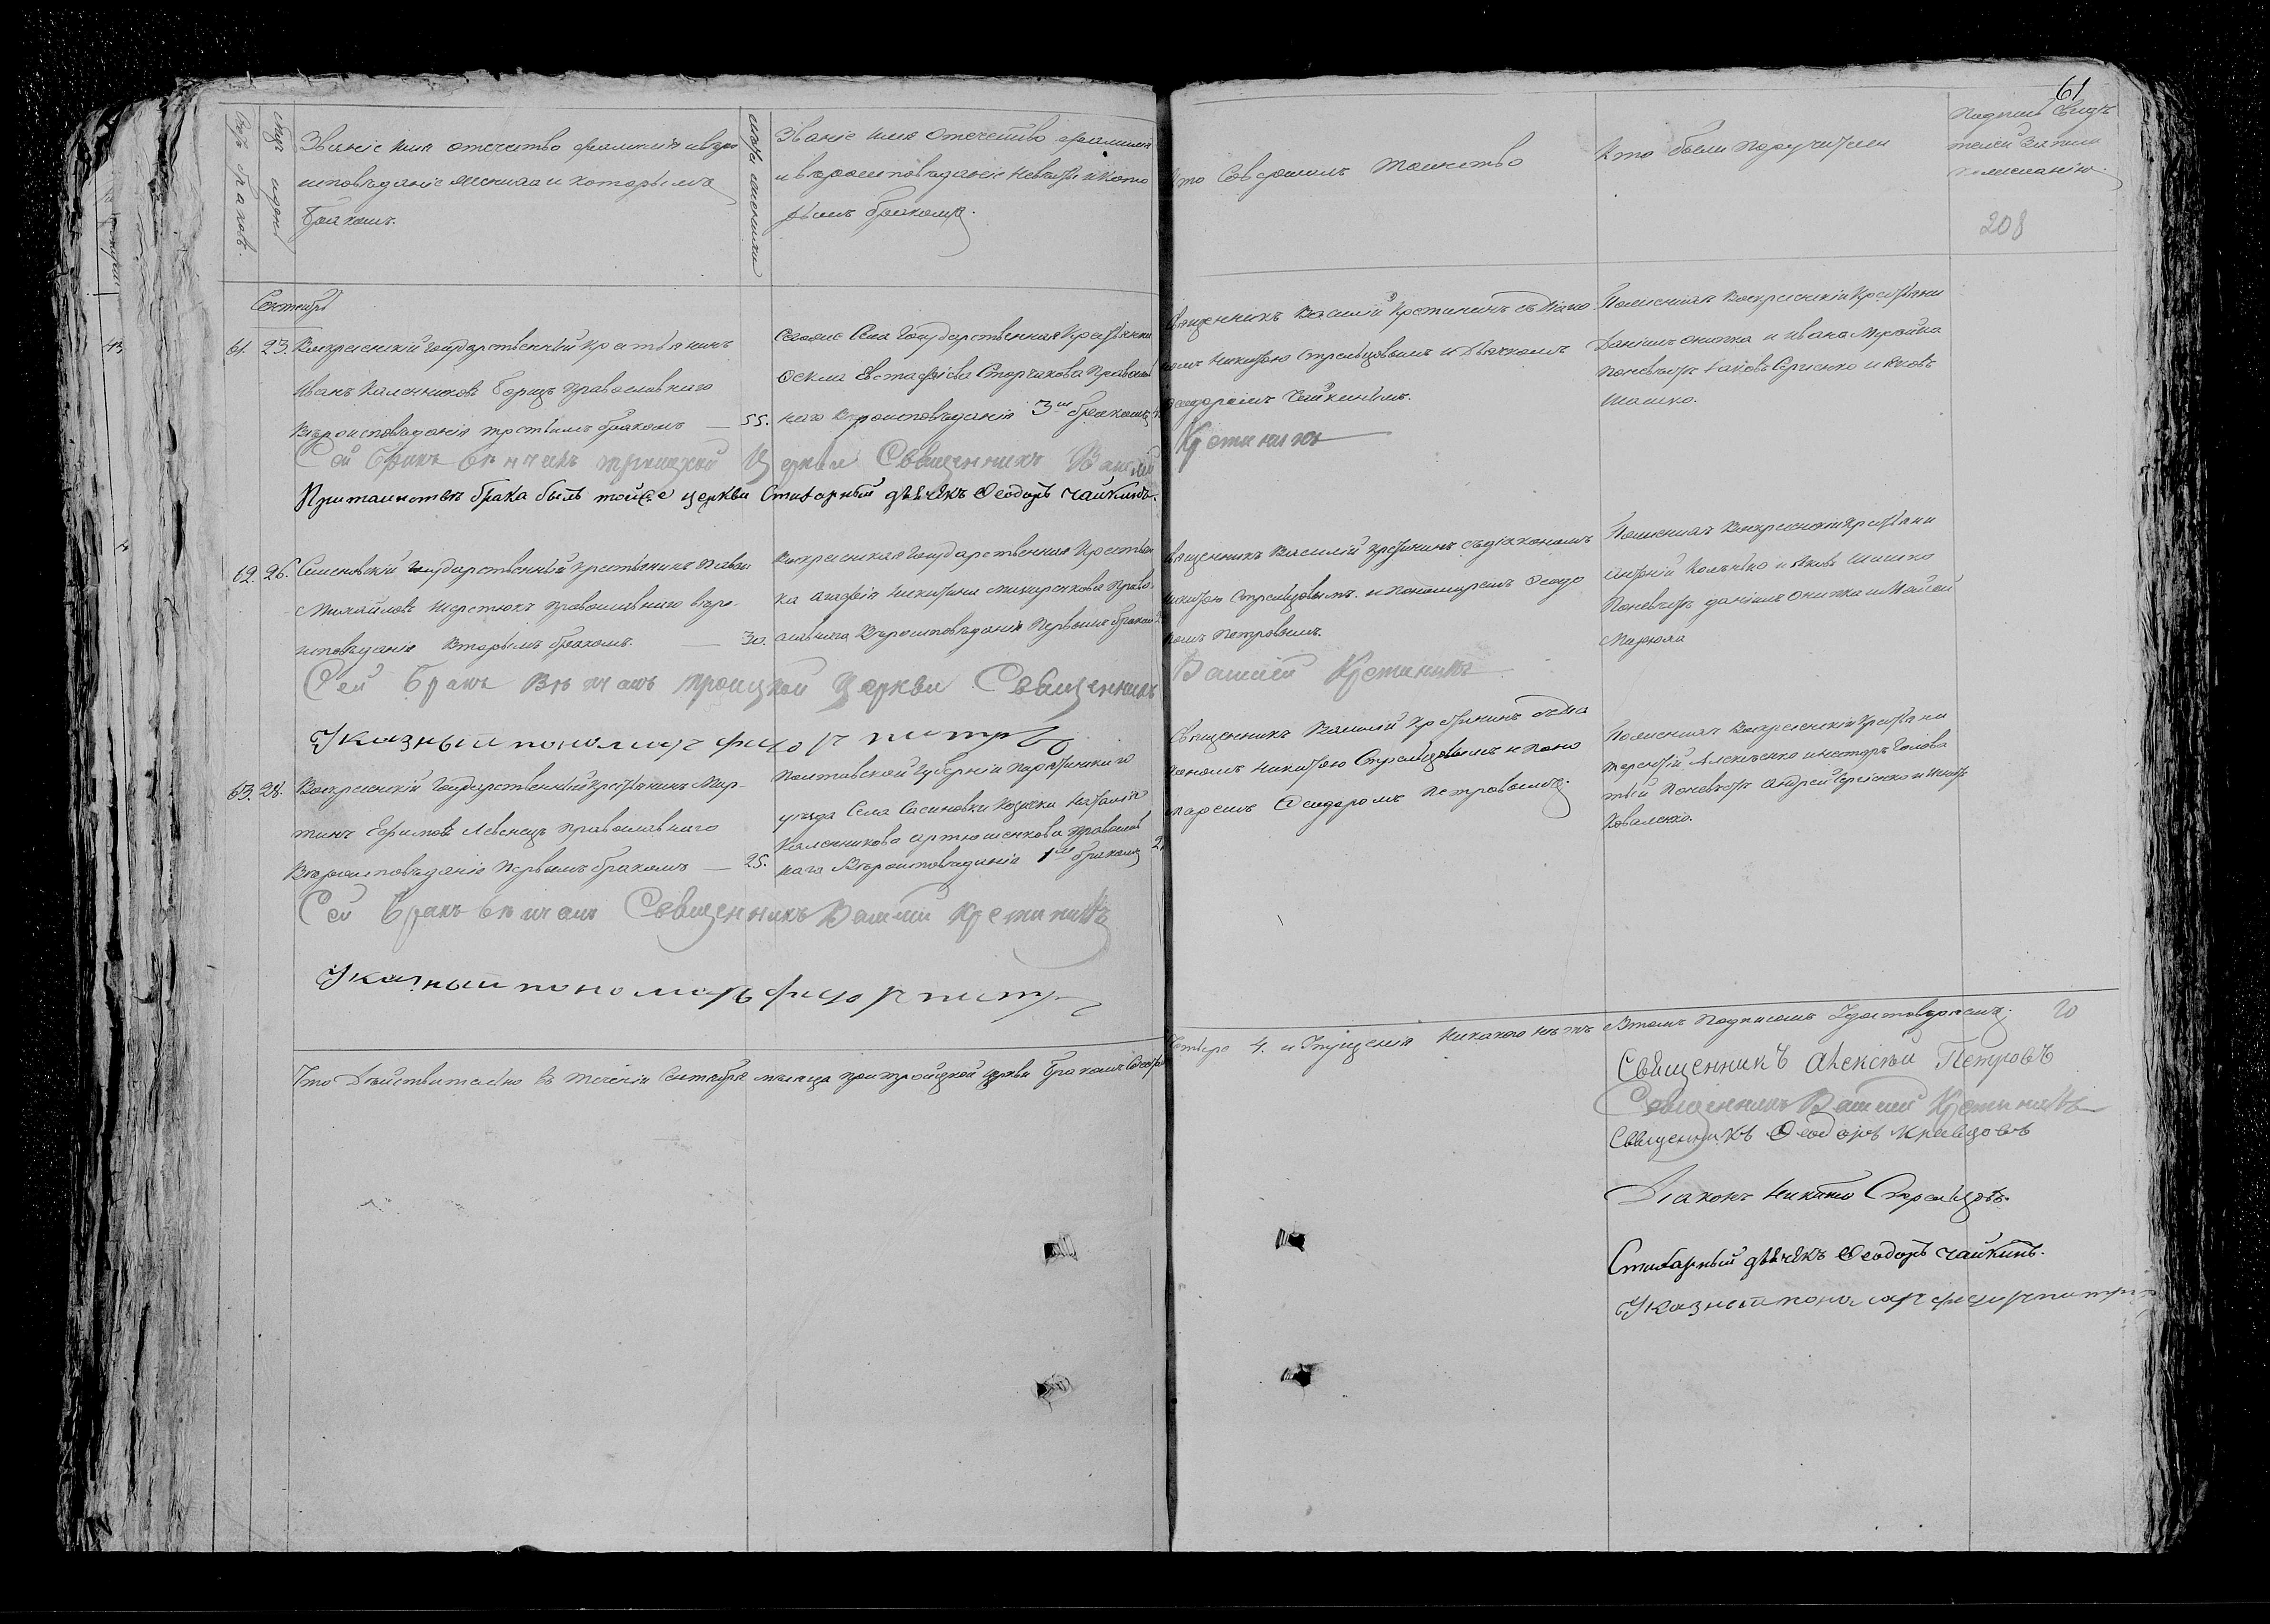 61
Счетъ браковъ.
Мѣсяцъ и день
Званіе имя отечество фамилия и вѣро
исповѣданіе жениха и которымъ
бракомъ.
лѣта жениха
Званіе имя отечество фамилия
и вѣроисповѣданіе невѣсты и кото
рымъ бракомъ.
Кто Совершалъ Таинство
Кто были Поручители
Подпись Свидѣ
телей Записи
по желанію.
208
Сентябрь
61. 23. Воскресенскій Государственный Крестьянинъ
Иванъ Калениковъ Борецъ Православнаго
Вѣроисповѣданія третьимъ бракомъ — 55.
Села Государственная Крестьянка
Ѳекла Евстафіева Сторчакова Православ
наго Вѣроисповѣданія 3мъ бракомъ
Священникъ Василій Кретининъ съ Діако
номъ Никитою Стрельцовымъ и Дьячкомъ
Ѳеодоромъ Чайкинымъ.
По женихѣ Воскресенскіи Крестьяни
Даніилъ Онипка и Иванъ
По невѣстѣ Яковъ Сергіенко и Яковъ
Шашко.
Сей бракъ вѣнчалъ троицкой Церкви Священникъ Василій Кретининъ
При таинствѣ брака былъ тойже церкви Стихарный дьячекъ Ѳеодоръ Чайкинъ.
62. 26. Семеновскій Государственный Крестьянинъ Павелъ
Михайловъ Шерстюкъ Православнаго вѣро-
исповѣданія Вторымъ бракомъ. — 30.
Воскресенская Государственная Крестьян
ка Агафія Никитина Православ
славнаго Вѣроисповѣданія Первымъ бракомъ
Священникъ Василій Кретининъ съ діакономъ
Никитою Стрельцовымъ и Пономаремъ Ѳеодо
ромъ Петровымъ.
По женихѣ Воскресенскіи Крестьяни
Антоній и Яковъ Шашко
По невѣстѣ Даніилъ Онипка и Мойсей
Сей Бракъ Вѣнчалъ троицкой Церкви Священникъ Василій Кретининъ
Указный пономарь Фидоръ Питровъ
63. 28. Воскресенскій Государственный Крестьянинъ Мар-
тинъ Ефимовъ Левенецъ Православнаго
Вѣроисповѣданія Первымъ бракомъ — 25.
Полтавской Губерніи
уѣзда Села Сасиновки Козачка Наталія
Каленикова Артюшенкова Православ
наго Вѣроисповѣданія 1мъ бракомъ
Священникъ Василій Кретининъ съ Діа
кономъ Никитою Стрельцовымъ и Поно
маремъ Ѳеодоромъ Петровымъ.
По женихѣ Воскресенскіи Крестьяни
Терентій Алексѣенко и Несторъ Голова
тый По невѣстѣ Андрей Сергіенко и
Коваленко.
Сей Бракъ вѣнчалъ Священникъ Василій Кретининъ
Указный пономарь Фидоръ Питровъ
Что Дѣйствительно въ теченіи Сентября мѣсяца при троицкой церкви браковъ
Четыре 4. и Упущенія никакого нѣтъ Втомъ Подписомъ Удостовѣряемъ.
Священникъ Алексѣй Петровъ
Священникъ Василій Кретининъ
Священникъ Ѳеодоръ Кравцовъ
Діаконъ Никита Стрельцовъ.
Стихарный дьячекъ Ѳеодоръ Чайкинъ.
Указный пономарь Фидоръ Питровъ